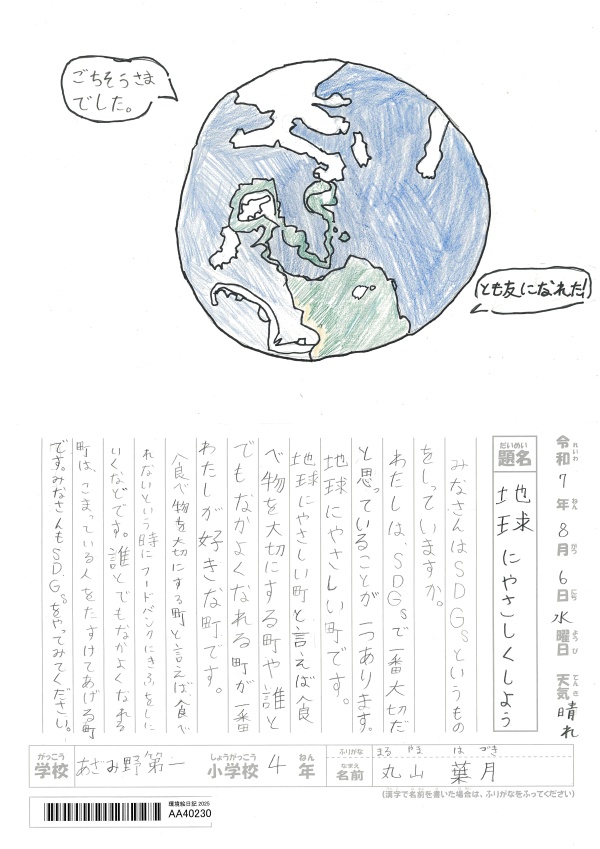 ごちそうさま
でした。
とも友になれた!
令和7年8月6日水曜日 天気晴れ
れいわ ねん がつ にち ようび てんき
だいめい
題名
地球にやさしくしよう
みなさんはSDGsというもの
をしっていますか。
わたしは、SDGsで一番大切だ
と思っていることが一つあります。
地球にやさしい町です。
地球にやさしい町と言えば食
べ物を大切にする町や誰と
でもなかよくなれる町が一番
わたしが好きな町です。
食べ物を大切にする町と言えば、食べ
れないという時にフードバンクにきふをしに
いくなどです。誰とでもなかよくなれる
町は、こまっている人をたすけてあげる町
です。みなさんもSDGsをやってみてください。
がっこう
学校
あざみ野第一
しょうがっこう
小学校
4
ねん
年
ふりがな
まるやま はづき
なまえ
名前
丸山 葉月
(漢字で名前を書いた場合は、ふりがなをふってください)
環境絵日記 2025
AA40230